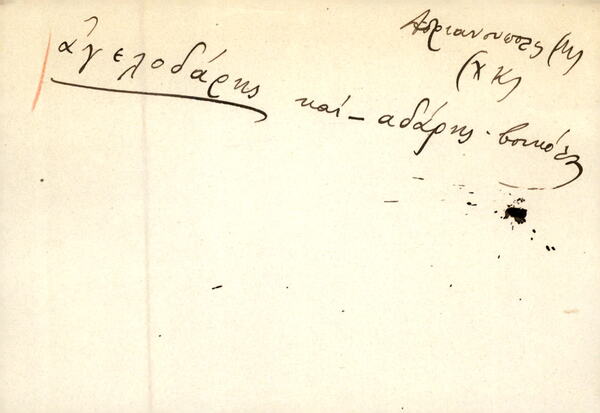 Ἀδριανούπολις (Μ)
(Χ Κ)
ἀγελοδάρης καὶ – αδάρης · βοσκός